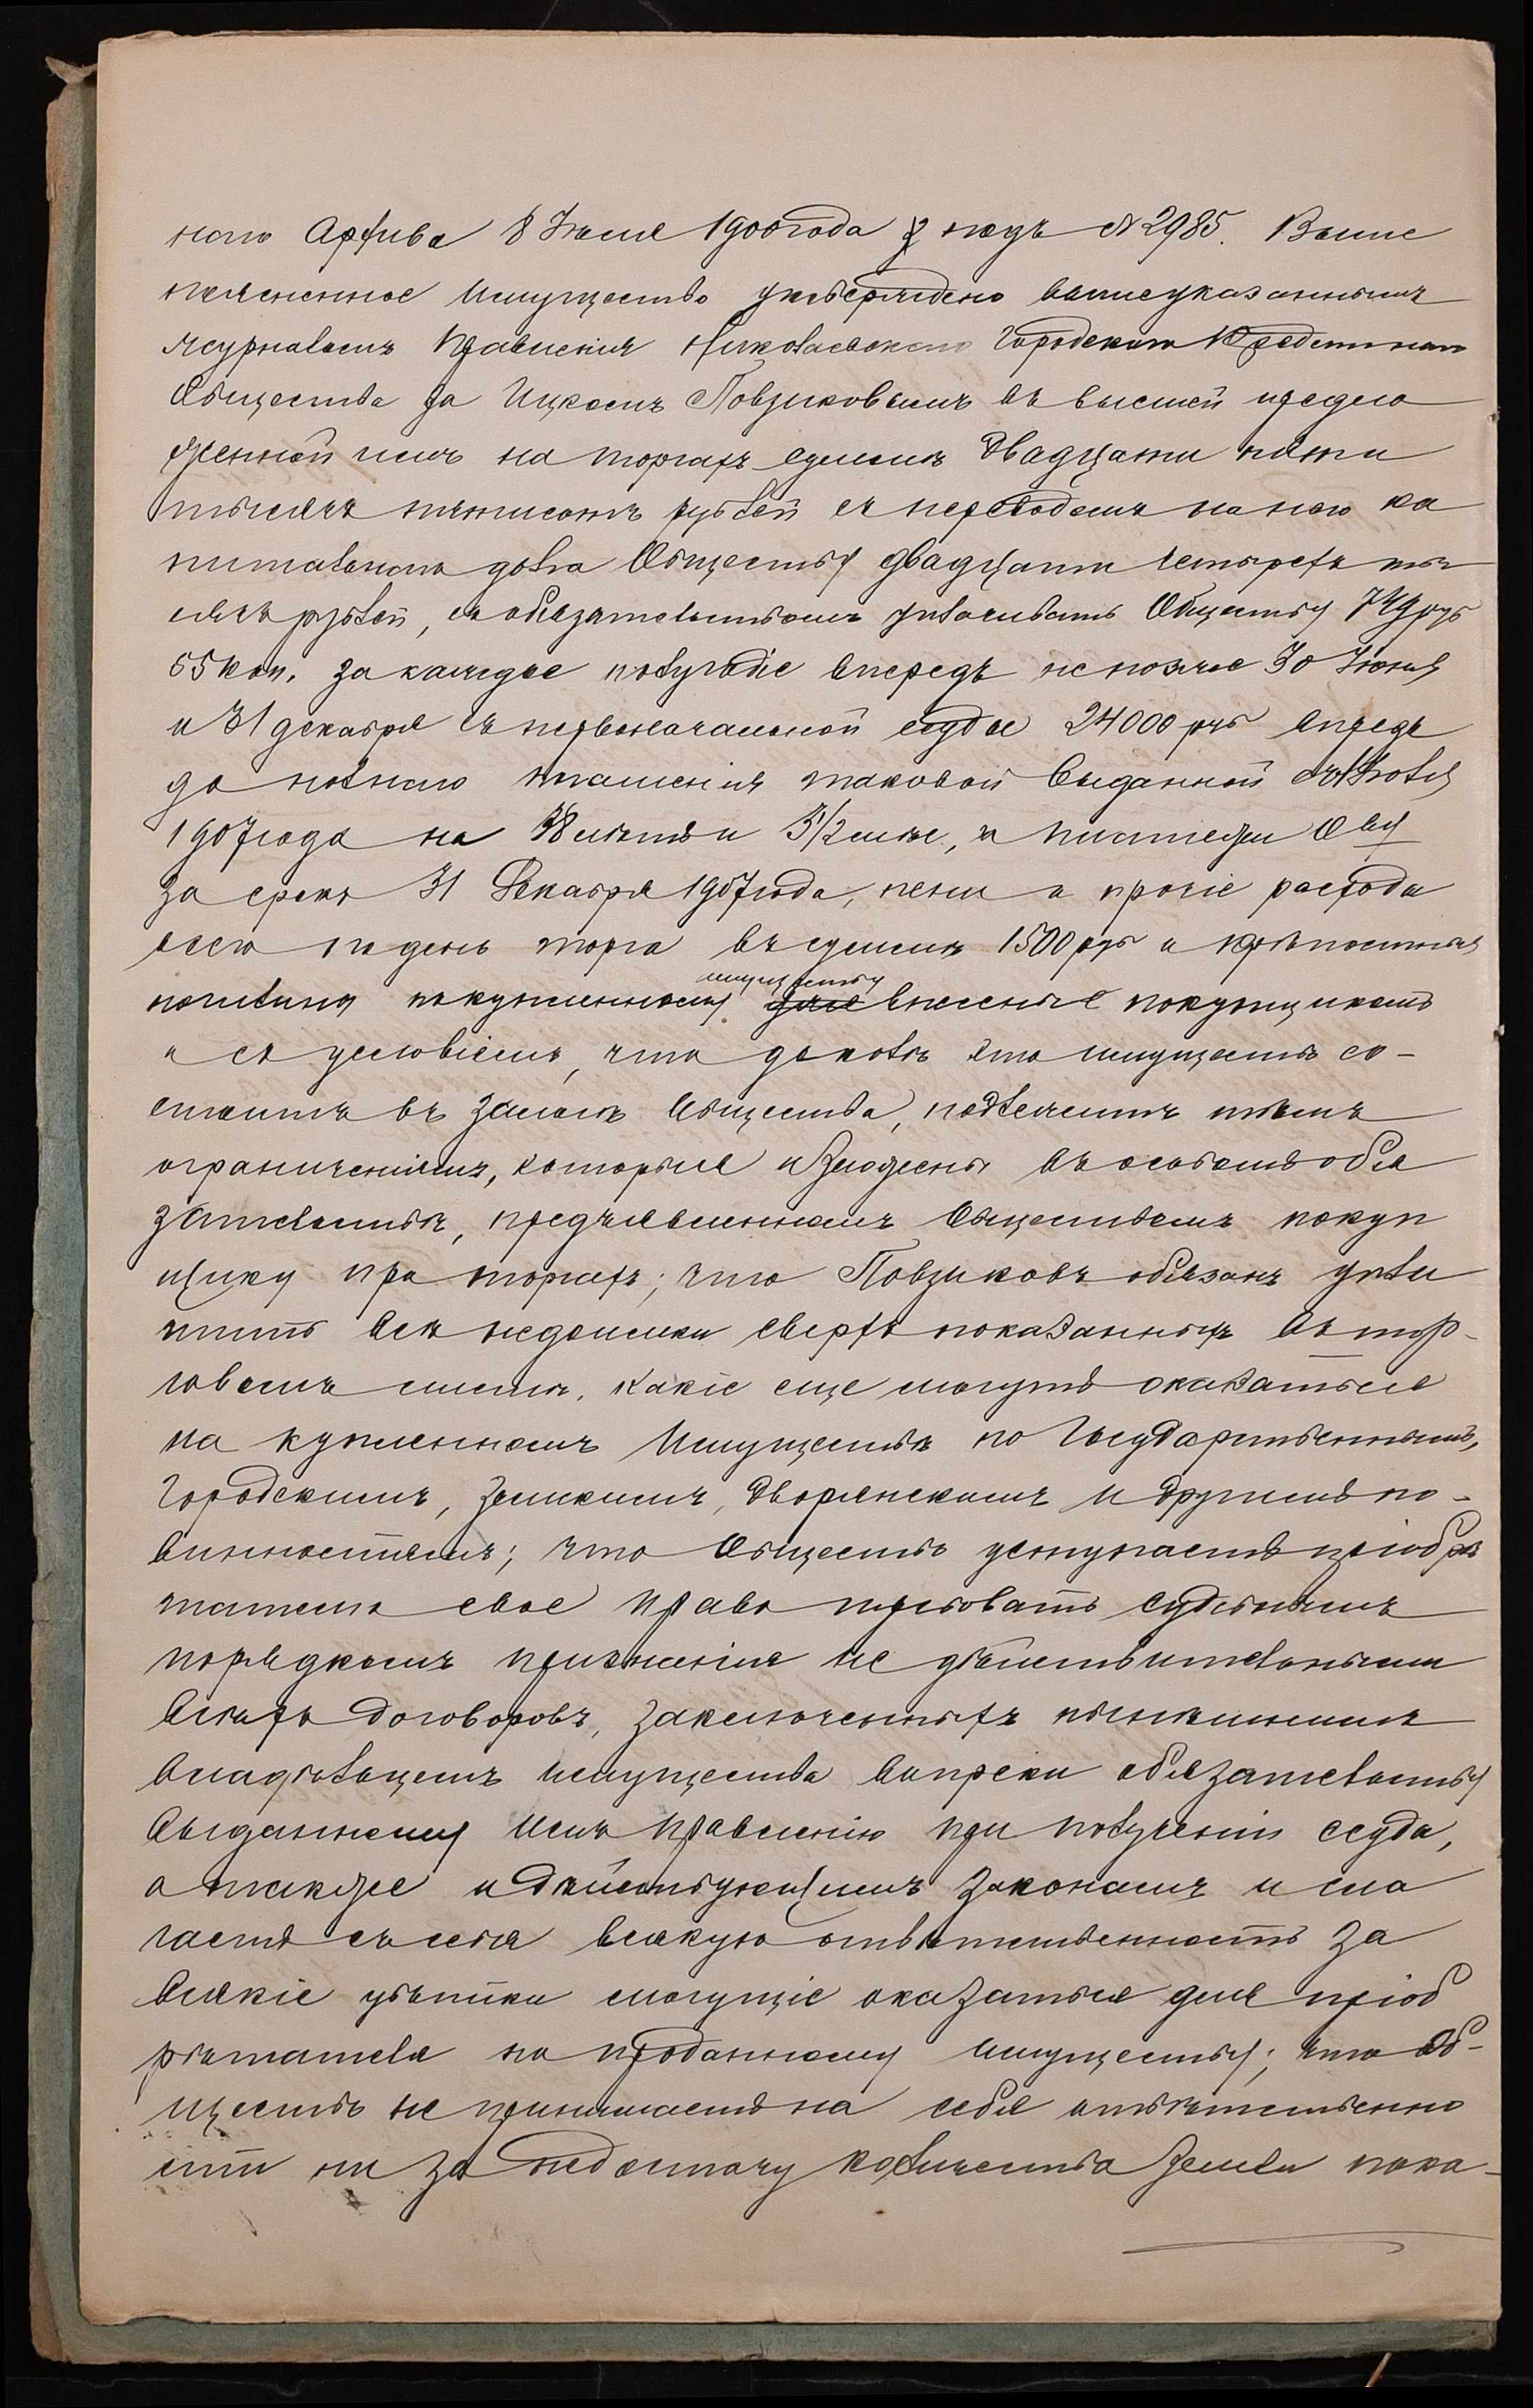 наго Архива 8 Іюля 1900 года подъ № 2985. Выше
поясненное имущество утверждено вышеуказаннымъ
журналомъ Правленія Николаевскаго Городскаго Кредитнаго
Общества за Ицкомъ Повзиковымъ въ высшей предло
женной имъ на торгахъ суммѣ двадцати пяти
тысячъ пятисотъ рублей съ переводомъ на него ка
питальнаго долга Обществу двадцати четырехъ ты
сячъ рублей, съ обязательствомъ уплачивать Обществу 749 руб
55 коп. за каждое полугодіе впередъ не позже 30 Іюня
и 31 декабря съ первоначальной ссуды 24000 руб впредь
до полнаго погашенія таковой выданной
1907 года на 38 лѣтъ и 3½ мѣс., и платежи Ову
за срокъ 31 Декабря 1907 года, пени и прочіе расходы
всего по день торга въ суммѣ 1500 руб и крѣпостныя
пошлины покупленному имуществу внесены покупщикомъ
и съ условіемъ, что доколѣ это имущество со-
стоитъ въ залогѣ Общества, подлежитъ тѣмъ
ограниченіямъ, которыя изложены въ особомъ обя
зательствѣ, предъявленномъ Обществомъ покуп
щику при торгахъ; что Повзиковъ обязанъ упла
тить всѣ недоимки сверхъ показанныхъ въ тор-
говомъ листѣ, какіе еще могутъ оказаться
на купленномъ имуществѣ по Государственнымъ,
Городскимъ, Земскимъ, Дворянскимъ и другимъ по-
винностямъ; что Общество уступаетъ пріобрѣ
тателю свое право требовать судебнымъ
порядкомъ признанія не дѣйствительными
всѣхъ договоровъ, заключенныхъ нынѣшнимъ
владѣльцемъ имущества вопреки обязательству
выданному имъ Правленію при полученіи ссуды,
а также и дѣйствующимъ законамъ и сла
гаетъ съ себя всякую отвѣтственность за
всякіе убытки могущіе оказаться для пріоб
рѣтателя по проданному имуществу; что Об-
щество не принимаетъ на себя отвѣтственно
сти ни за недостачу количества земли пока-